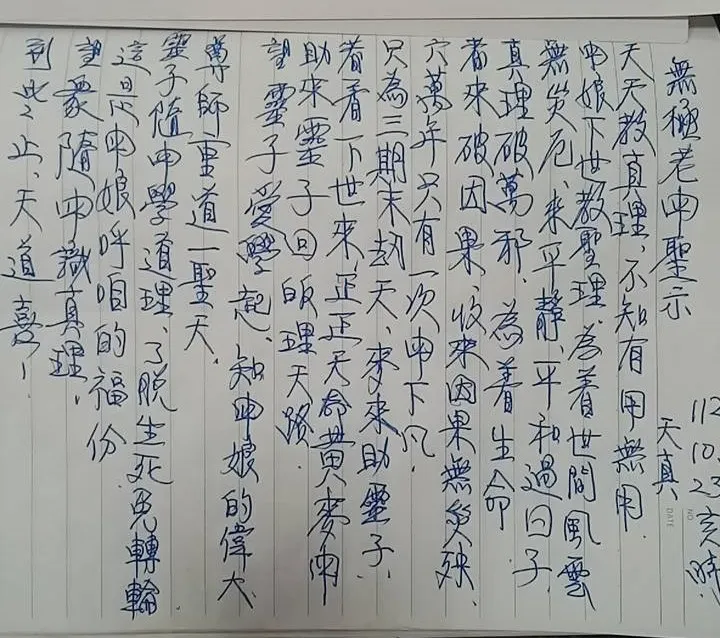 112.10.23亥時
天真
無極老申聖示
天天教真理、不知有用無用
申娘下世教聖理、為着世間風雲
無災厄、來平靜平和過日子.
真理破萬邪、為着生命
者來破因果、收來因果無災殃.
六萬年只有一次申下凡.
只為三期末劫天、來助靈子.
着看一下世來、正正天命黃 申
助來靈子回 理天路.
望靈子愛學起、知申娘的偉大.
尊師重道一聖天.
靈子隨申學道理、了脫生死免轉輪.
這是申娘呼咱的福份
望眾隨申識真理.
到此止、天道喜!
NO
DATE